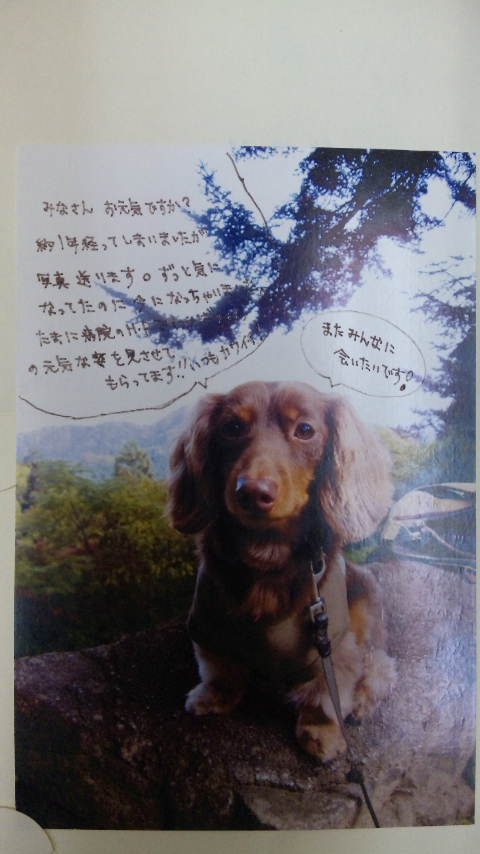 みなさん お元気ですか?
約1年経ってしまいましたが
写真 送ります。ずっと気に
なってたのに 今になっちゃいました
たまに 病院のH.P
の元気な姿を見させて
もらってます!!いつもカワイイ
またみんなに
会いたいです。